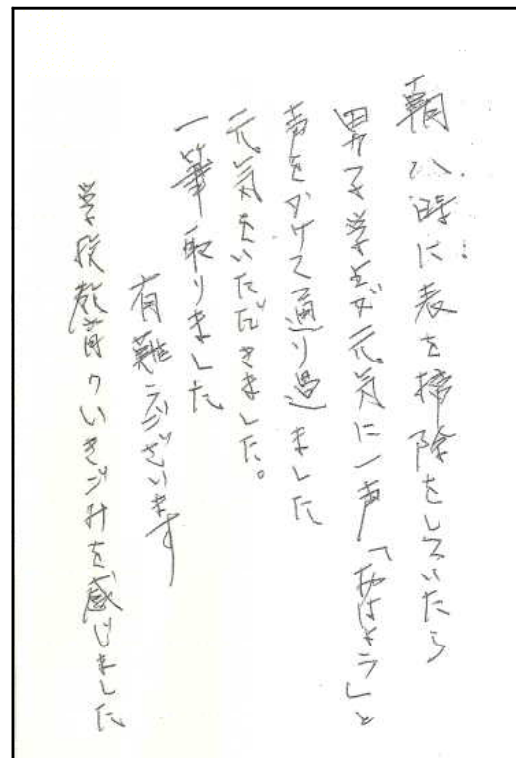 朝八時に表を掃除をしていたら
男子学生が元気に一声「おはよう」と
声をかけて通り過ました
元気をいただきました。
一筆取りました
有難うございます
学校教育のいきごみを感じました